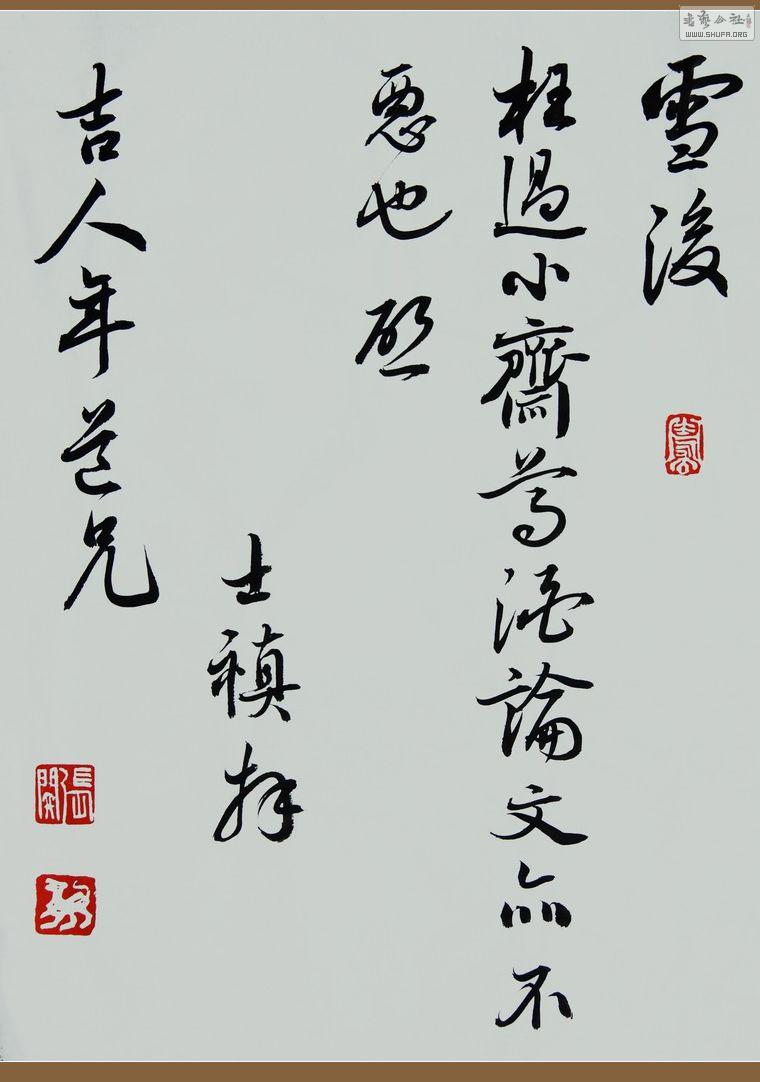 雪後
枉過小齋尊酒論文亦不
惡也 啓
士禛拜
吉人年道兄
張開
書藝公社
WWW.SHUFA.ORG